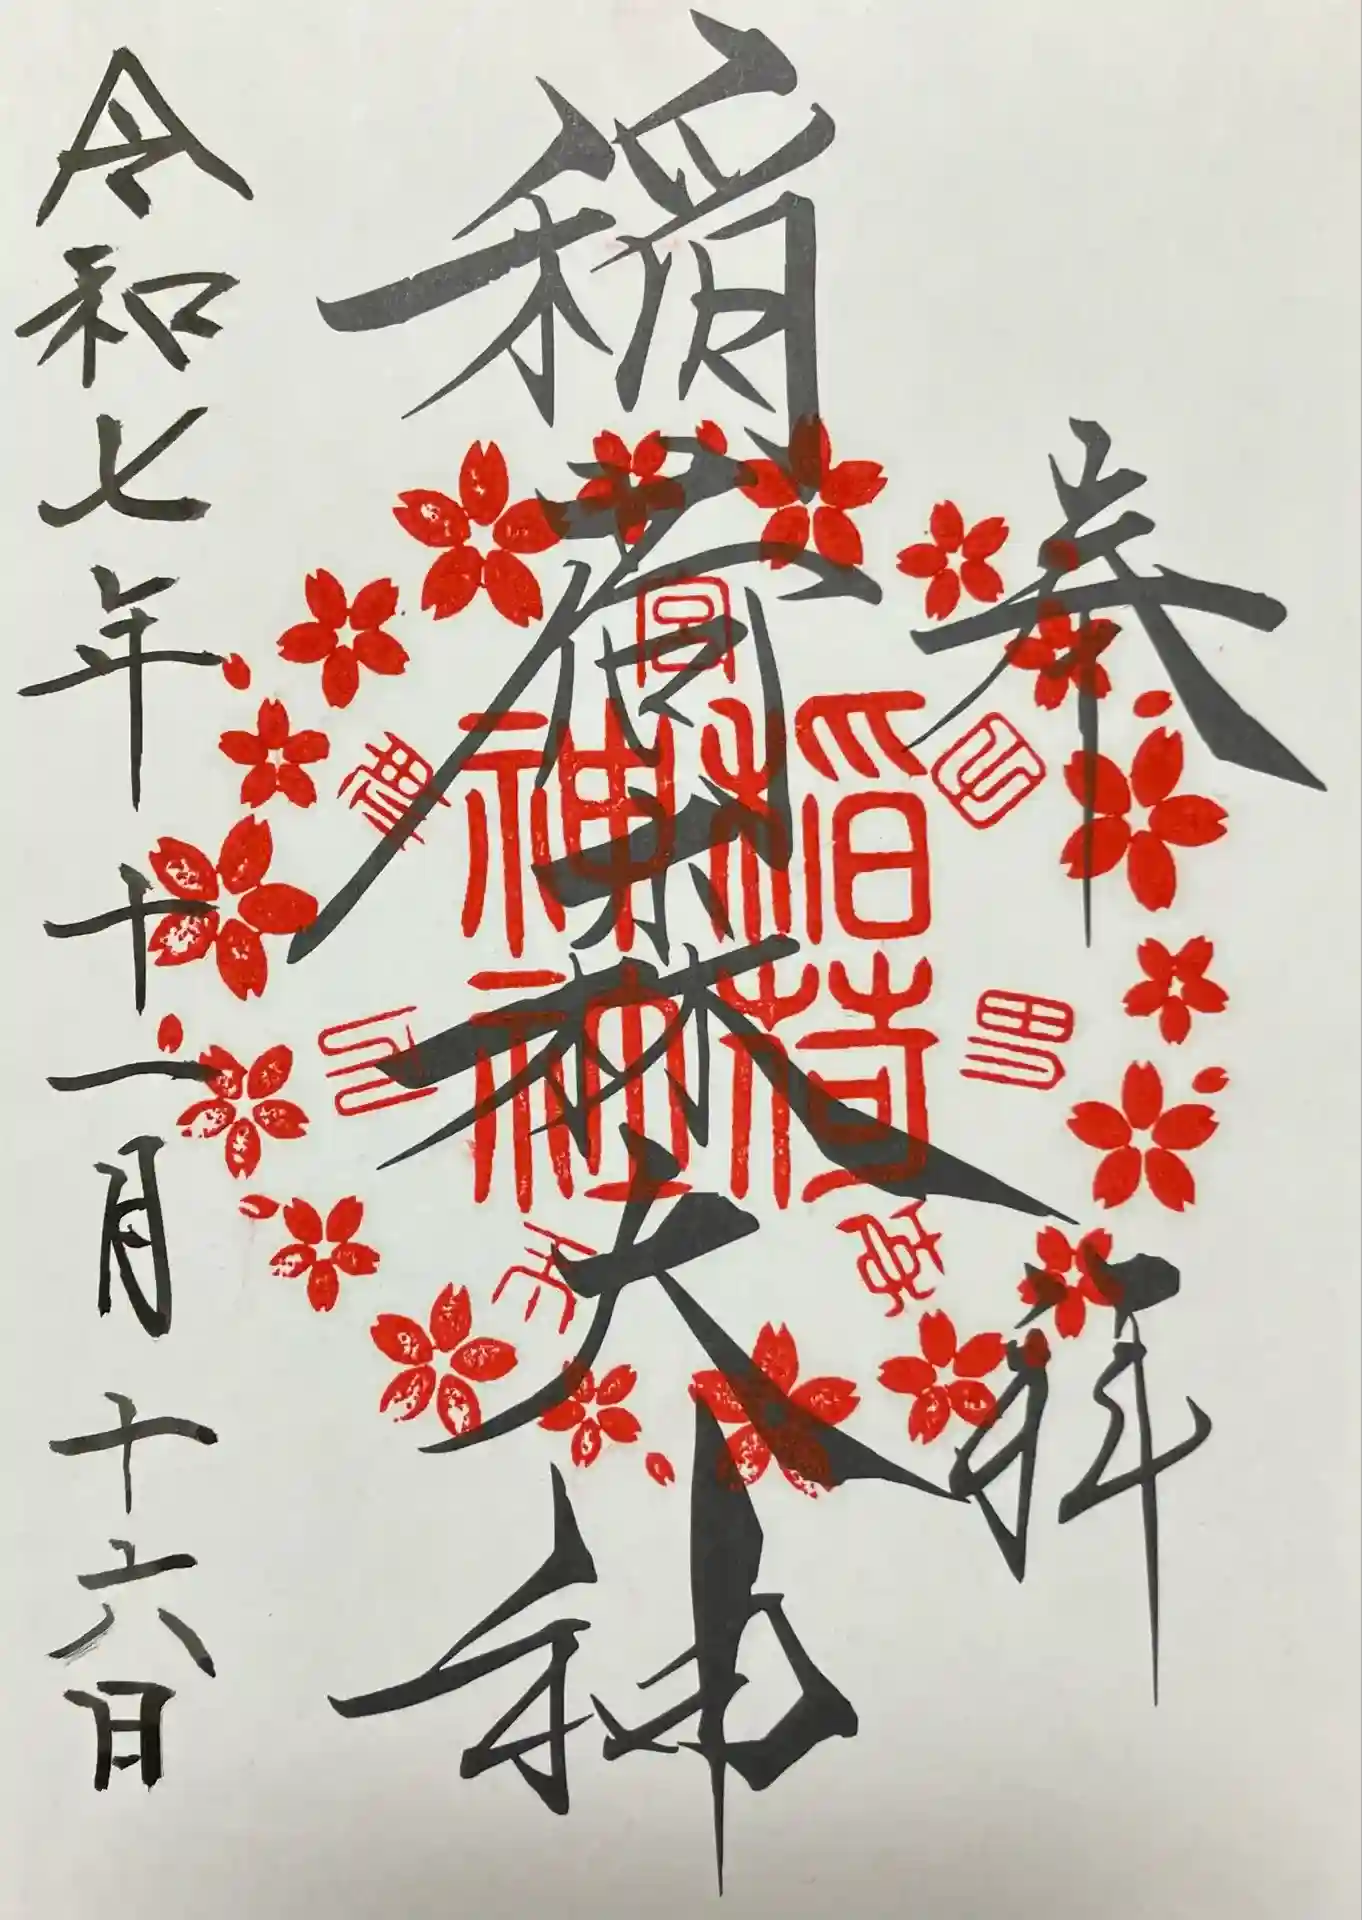 奉拝
稲荷森大神
稲荷
神社
令和七年十一月十六日